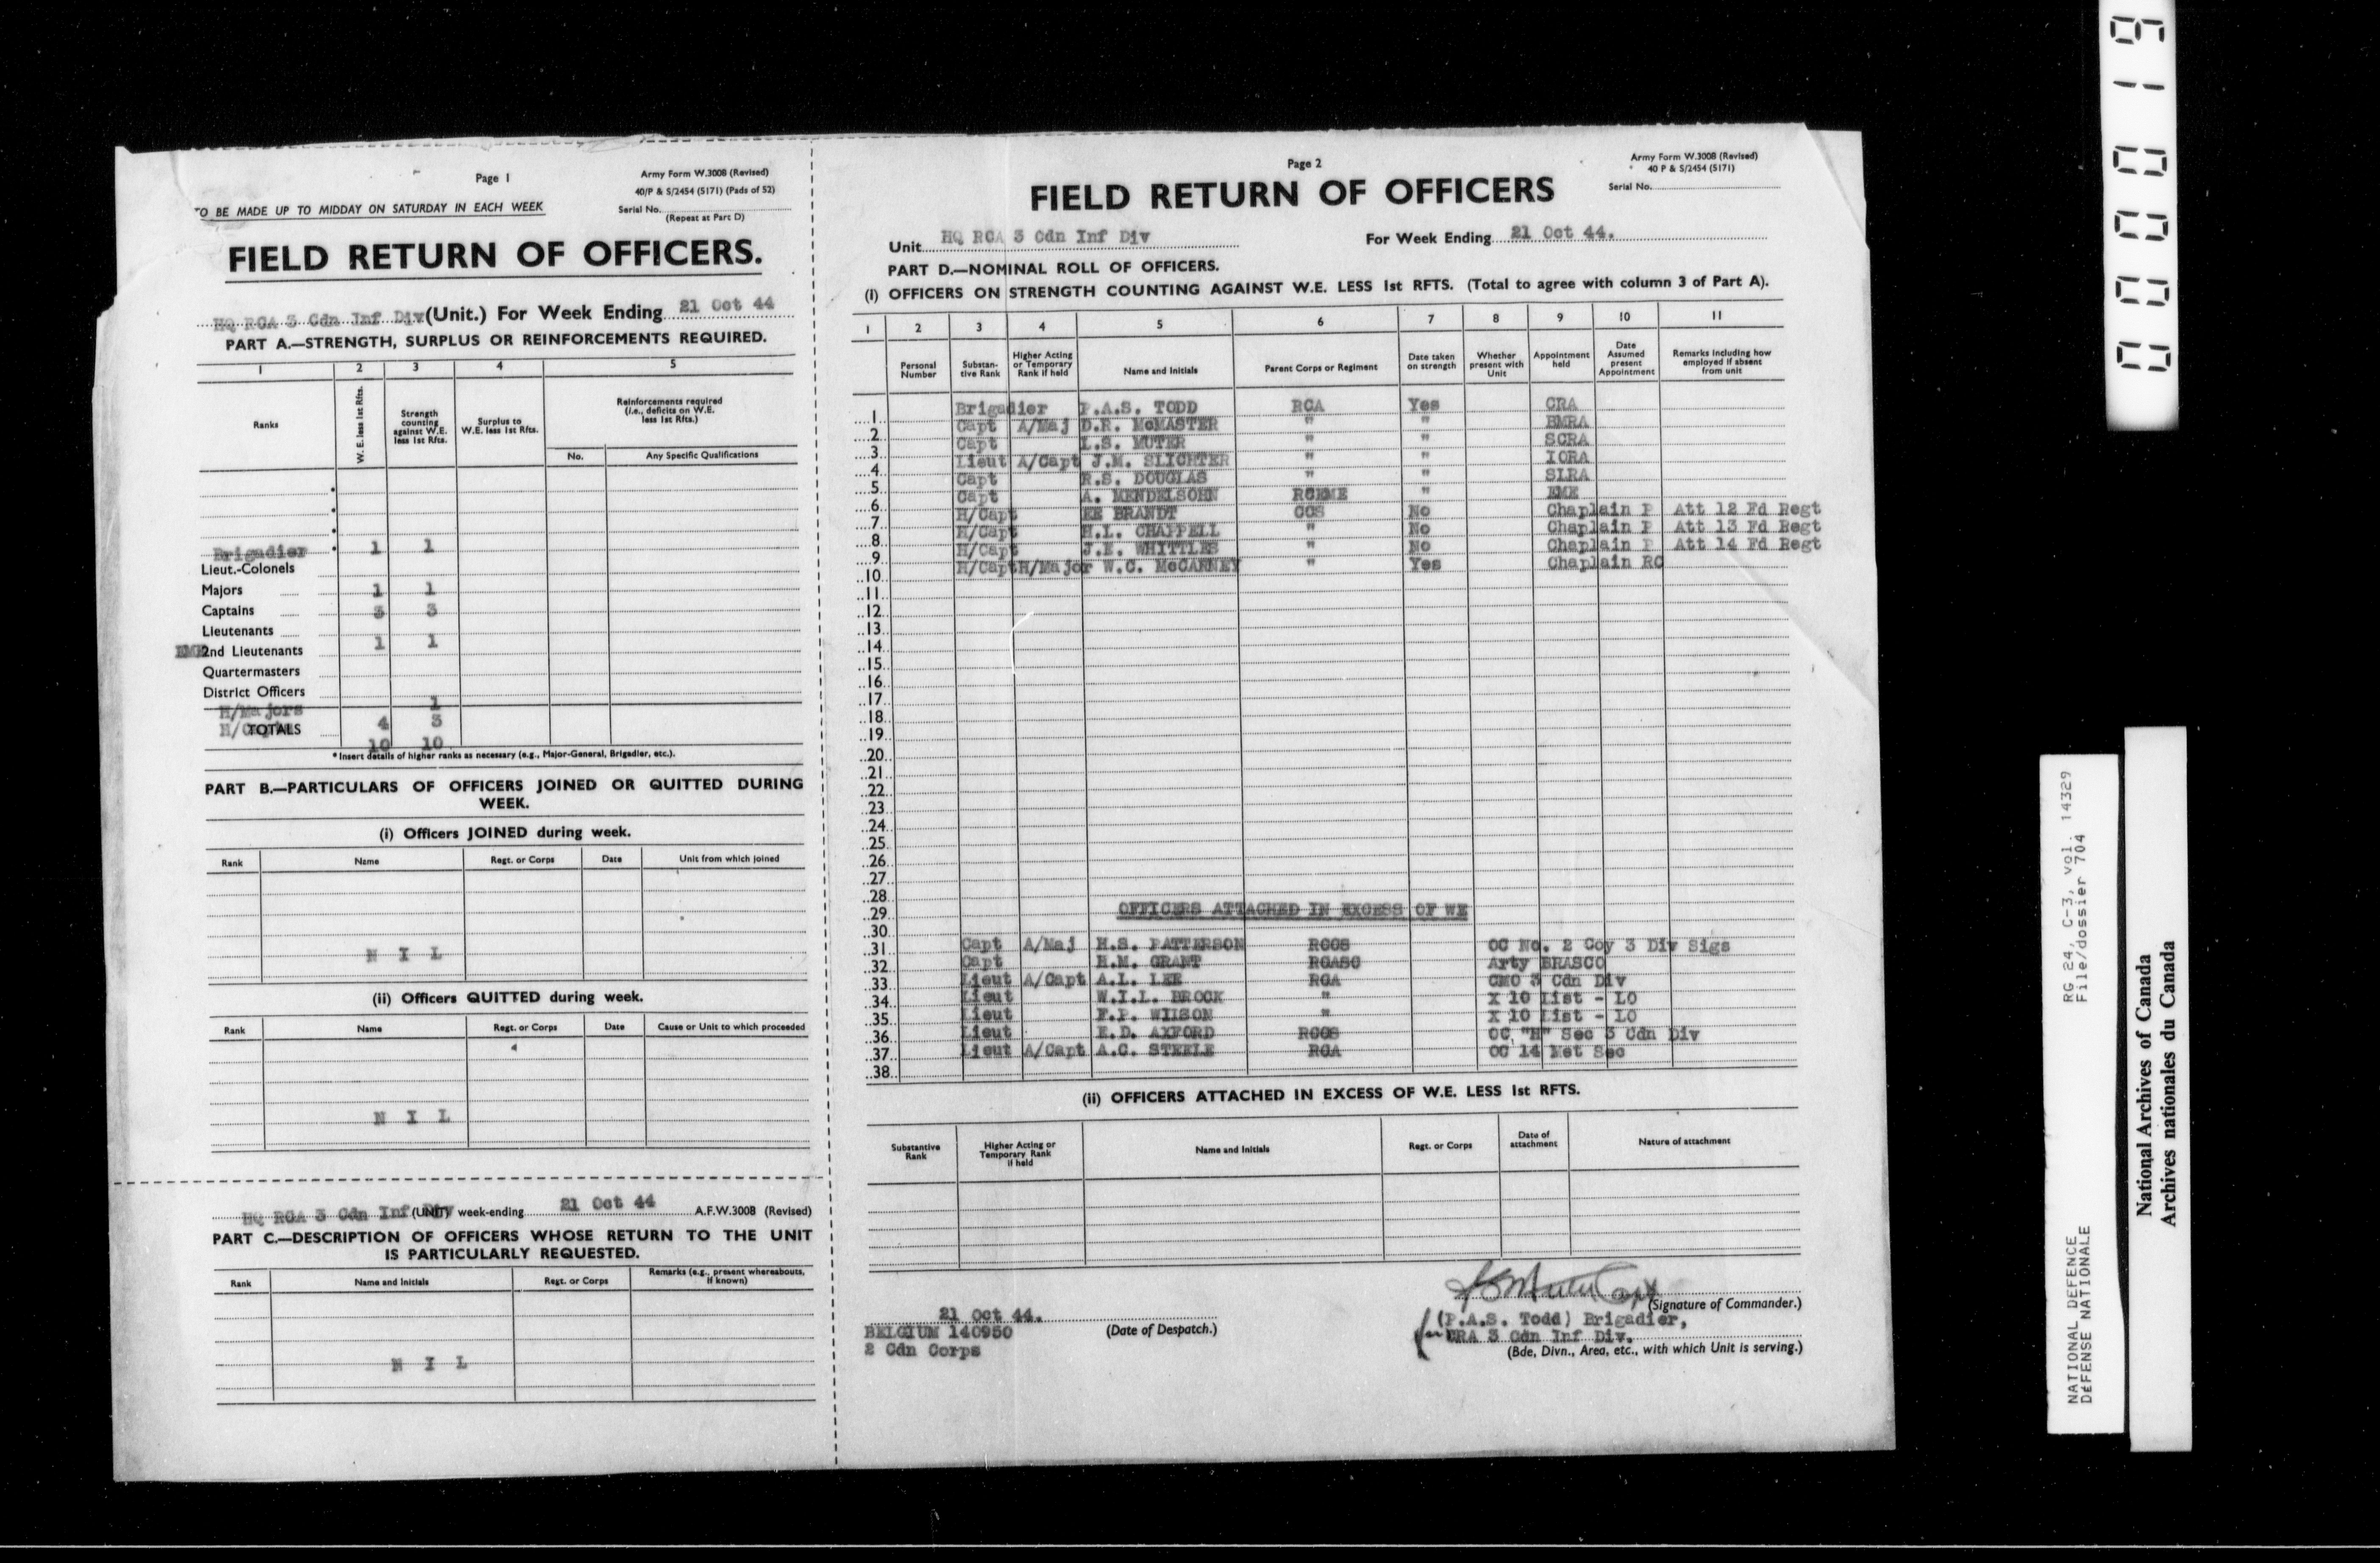 Page 1
Army Form W.3008 (Revised)
40/P & S/2454 (5171) (Pads of 52)
TO BE MADE UP TO MIDDAY ON SATURDAY IN EACH WEEK
Serial No.
(Repeat at Part D)
FIELD RETURN OF OFFICERS.
HQ RCA 3 Cdn Inf Div (Unit.) For Week Ending 21 Oct 44
PART A.—STRENGTH, SURPLUS OR REINFORCEMENTS REQUIRED.
1 2 3 4 5
Ranks
W. E. less 1st Rfts.
Strength counting against W.E. less 1st Rfts.
Surplus to W.E. less 1st Rfts.
Reinforcements required (i.e., deficits on W.E. less 1st Rfts.)
No. Any Specific Qualifications
Brigadier 1 1
Lieut.-Colonels
Majors 1 1
Captains 3 3
Lieutenants
2nd Lieutenants 1 1
Quartermasters
District Officers
H/Majors 1
H/Capts 4 3
TOTALS 10 10
* Insert details of higher ranks as necessary (e.g., Major-General, Brigadier, etc.).
PART B.—PARTICULARS OF OFFICERS JOINED OR QUITTED DURING
WEEK.
(i) Officers JOINED during week.
Rank Name Regt. or Corps Date Unit from which joined
N I L
(ii) Officers QUITTED during week.
Rank Name Regt. or Corps Date Cause or Unit to which proceeded
N I L
HQ RCA 3 Cdn Inf Div (UNIT) week-ending 21 Oct 44 A.F.W.3008 (Revised)
PART C.—DESCRIPTION OF OFFICERS WHOSE RETURN TO THE UNIT
IS PARTICULARLY REQUESTED.
Rank Name and Initials Regt. or Corps Remarks (e.g., present whereabouts, if known)
N I L
Page 2
Army Form W.3008 (Revised)
40 P & S/2454 (5171)
Serial No.
FIELD RETURN OF OFFICERS
Unit HQ RCA 3 Cdn Inf Div For Week Ending 21 Oct 44.
PART D.—NOMINAL ROLL OF OFFICERS.
(i) OFFICERS ON STRENGTH COUNTING AGAINST W.E. LESS 1st RFTS. (Total to agree with column 3 of Part A).
1 2 3 4 5 6 7 8 9 10 11
Personal Number
Substantive Rank
Higher Acting or Temporary Rank if held
Name and Initials
Parent Corps or Regiment
Date taken on strength
Whether present with Unit
Appointment held
Date Assumed present Appointment
Remarks including how employed if absent from unit
1 Brigadier P.A.S. TODD RCA Yes CRA
2 Capt A/Maj D.R. McMASTER " " BMRA
3 Capt L.S. MUTER " " SCRA
4 Lieut A/Capt J.M. SLICHTER " " IORA
5 Capt R.S. DOUGLAS " " SLRA
6 Capt A. MENDELSOHN RCEME " EME
7 H/Capt EE BRANDT CCS No Chaplain P Att 12 Fd Regt
8 H/Capt H.L. CHAPPELL " No Chaplain P Att 13 Fd Regt
9 H/Capt J.E. WHITTLES " No Chaplain P Att 14 Fd Regt
10 H/Capt H/Major W.C. McCARNEY " Yes Chaplain RC
11
12
13
14
15
16
17
18
19
20
21
22
23
24
25
26
27
28
29 OFFICERS ATTACHED IN EXCESS OF WE
30
31 Capt A/Maj H.S. PATTERSON RCCS OC No. 2 Coy 3 Div Sigs
32 Capt H.M. GRANT RCASC Arty BRASCO
33 Lieut A/Capt A.L. LEE RCA CMO 3 Cdn Div
34 Lieut W.I.L. BROCK " X 10 List - LO
35 Lieut F.P. WILSON " X 10 List - LO
36 Lieut E.D. AXFORD RCCS OC "H" Sec 3 Cdn Div
37 Lieut A/Capt A.C. STEELE RCA OC 14 Met Sec
38
(ii) OFFICERS ATTACHED IN EXCESS OF W.E. LESS 1st RFTS.
Substantive Rank
Higher Acting or Temporary Rank if held
Name and Initials
Regt. or Corps
Date of attachment
Nature of attachment
21 Oct 44. (Date of Despatch.)
BELGIUM 140950
2 Cdn Corps
LSMuter Capt
(Signature of Commander.)
(P.A.S. Todd) Brigadier,
for CRA 3 Cdn Inf Div.
(Bde, Divn., Area, etc., with which Unit is serving.)
000019
RG 24, C-3, vol. 14329
File/dossier 704
NATIONAL DEFENCE
DéFENSE NATIONALE
National Archives of Canada
Archives nationales du Canada